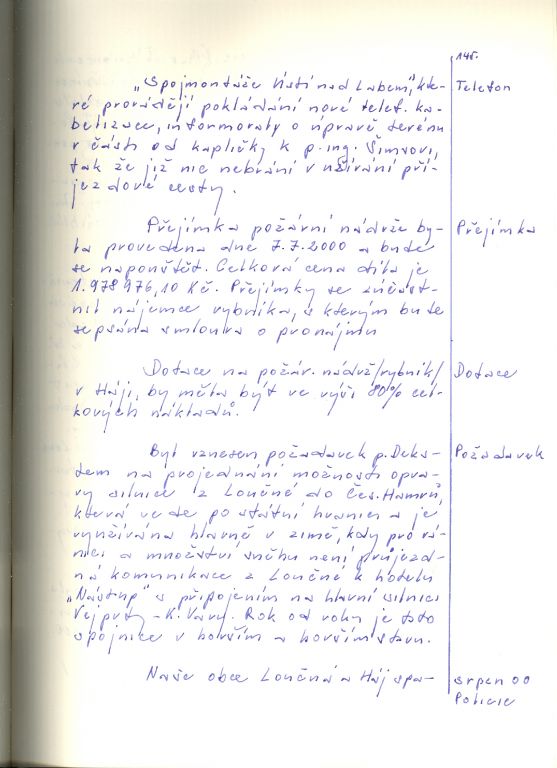 145.
"Spojmontáže Ústí nad Labem", kte- Telefon
ré provádějí pokládání nové telef. ka-
belizace, informovaly o úpravě terénu
v části od kapličky k p. ing. Šimsovi,
tak že již nic nebrání v užívání pří-
jezdové cesty.
Přejímka požární nádrže by- Přejímka
la provedena dne 7.7.2000 a bude
se napouštět. Celková cena díla je
1.978 976,10 Kč. Přejímky se zúčast-
nil nájemce rybníka, s kterým bude
sepsána smlouva o pronájmu
Dotace na požár. nádrž/rybník/ Dotace
v Háji, by měla být ve výši 80% cel-
kových nákladů.
Byl vznesen požadavek p. Deka- Požadavek
dem na projednání možnosti opra-
vy silnice z Loučné do Čes. Hamrů,
která vede po státní hranici a je
využívána hlavně v zimě, kdy pro vá-
nici a množství sněhu není průjezd-
ná komunikace z Loučné k hotelu
"Nástup" s připojením na hlavní silnici
Vejprty - K. Vary. Rok od roku je tato
spojnice v horším a horším stavu.
Naše obce Loučná a Háj spa- srpen 00
Policie